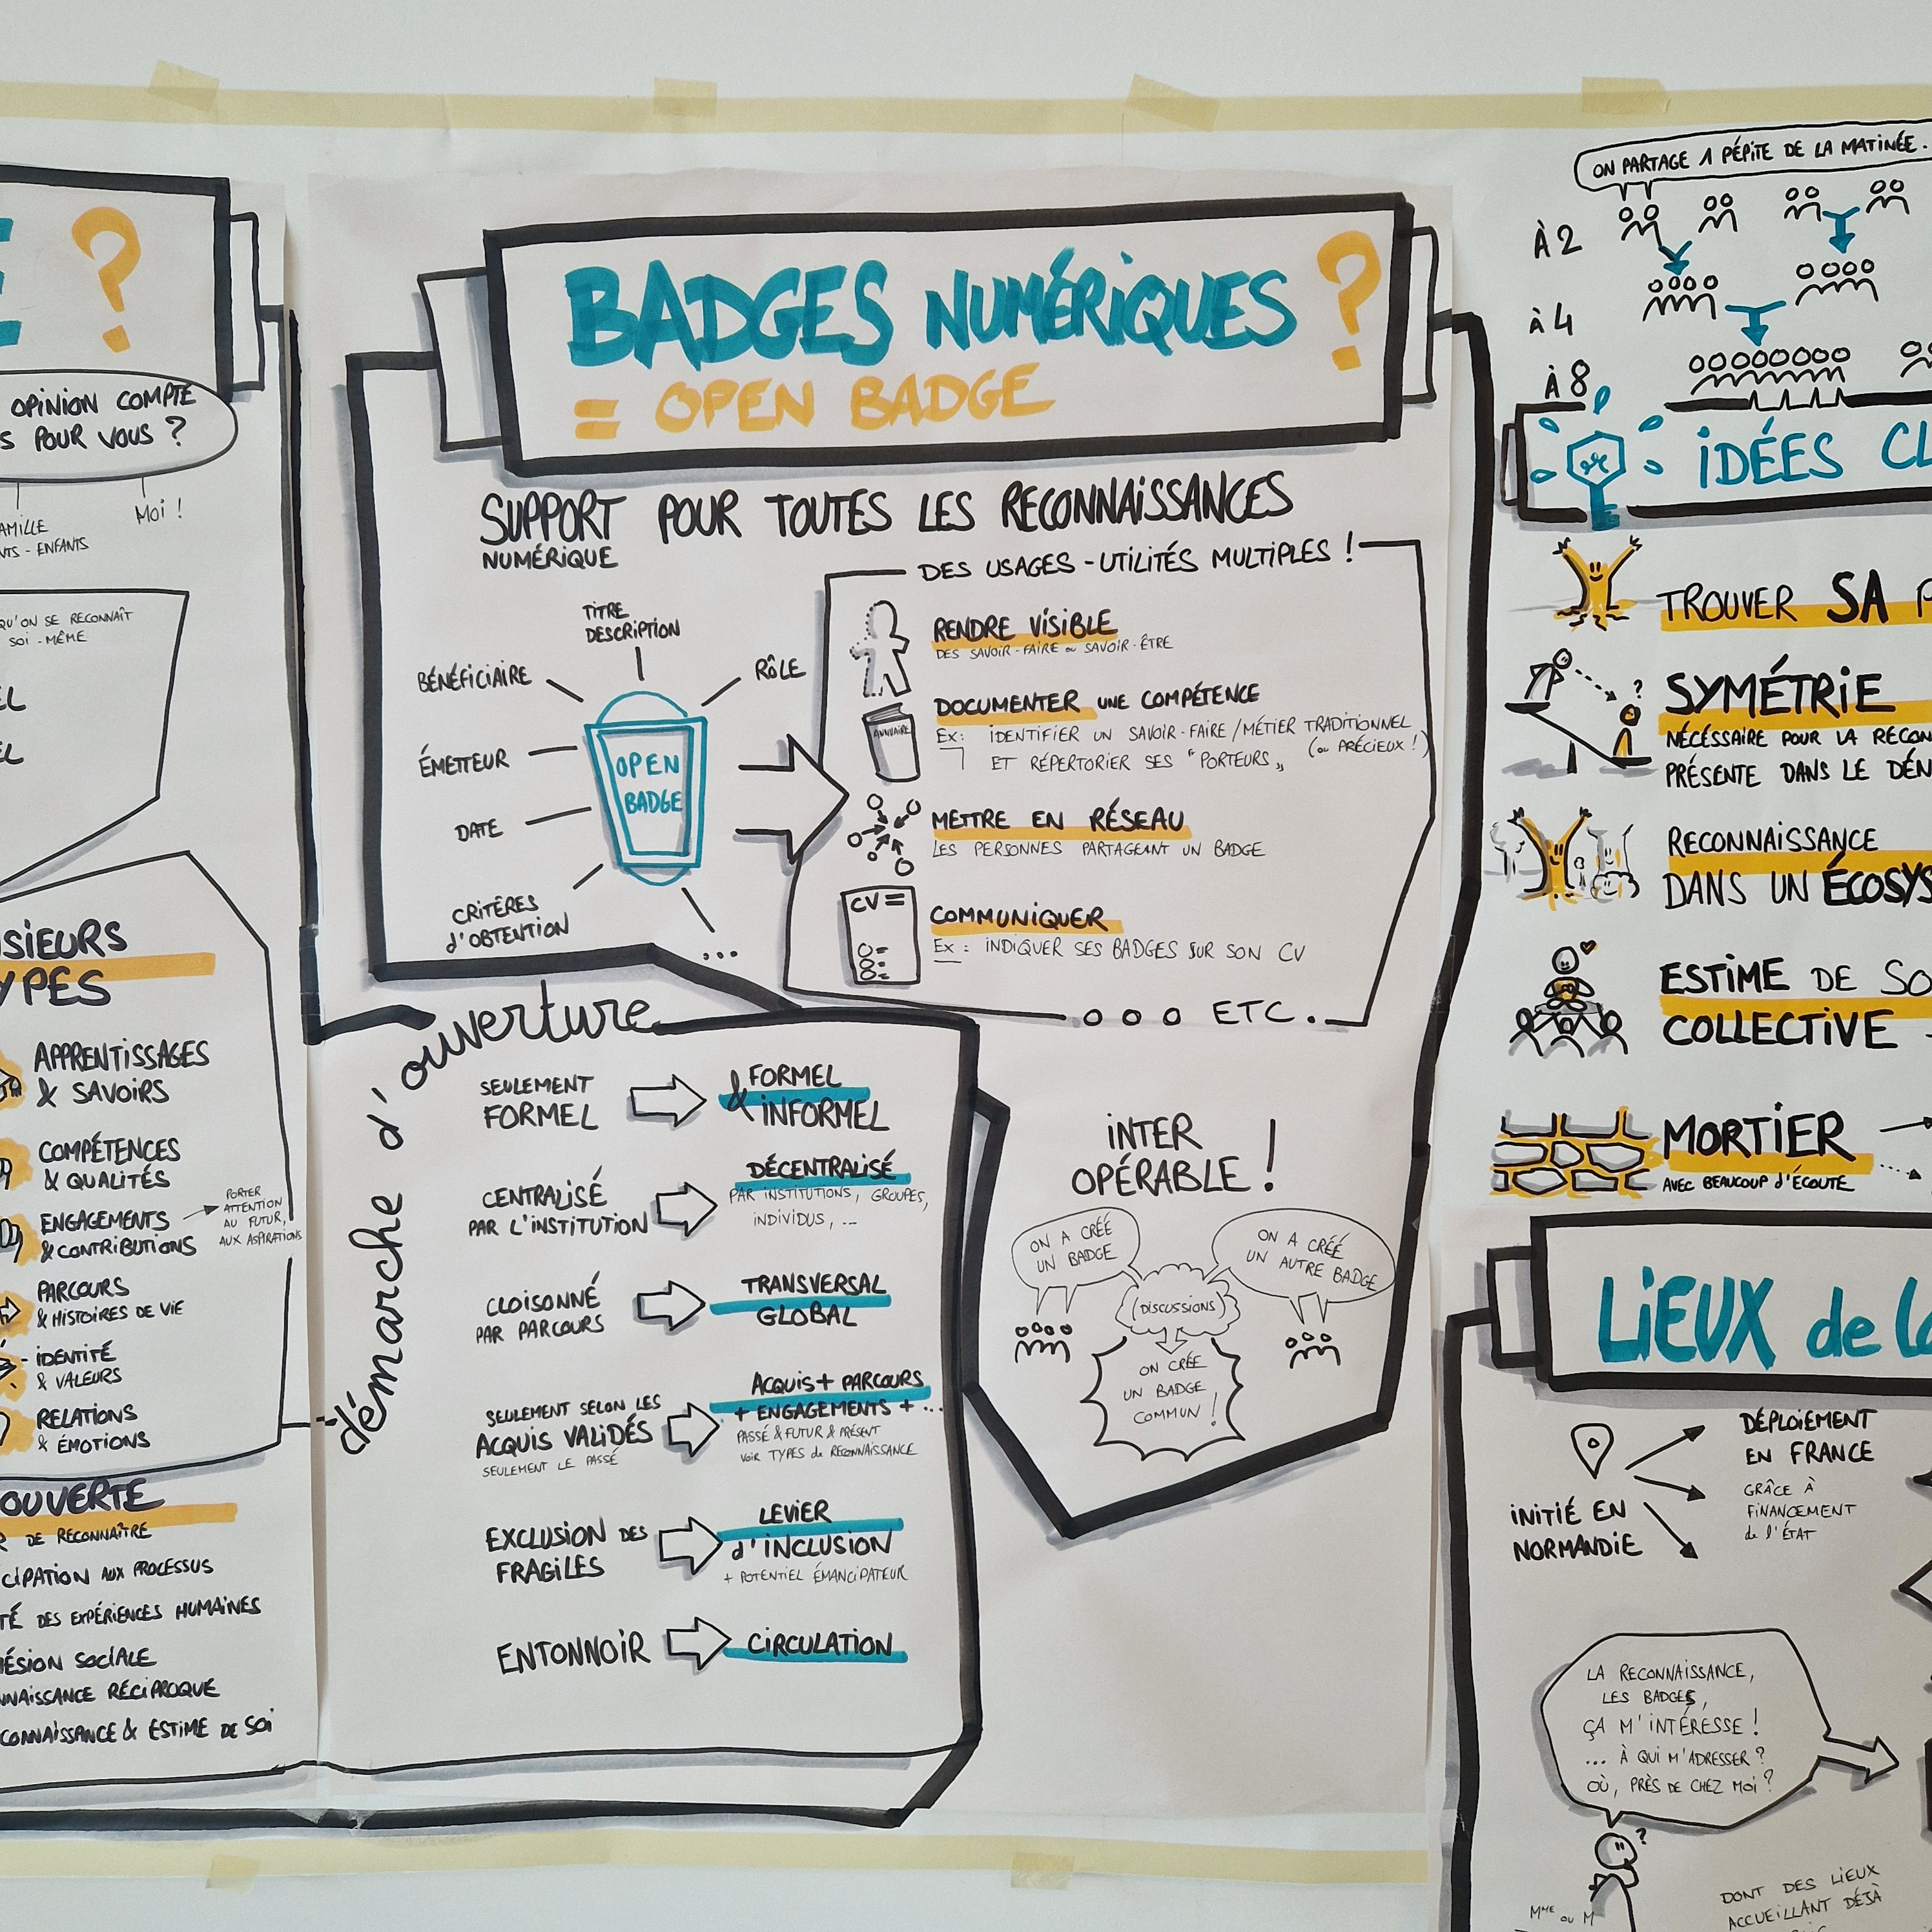 ?
OPINION COMPTE
S POUR VOUS ?
MOI !
AMILLE
NTS - ENFANTS
QU'ON SE RECONNAÎT
SOI-MÊME
EL
EL
SIEURS
YPES
APPRENTISSAGES
& SAVOIRS
COMPÉTENCES
& QUALITÉS
ENGAGEMENTS
& CONTRIBUTIONS
PORTER
ATTENTION
AU FUTUR,
AUX ASPIRATIONS
PARCOURS
& HISTOIRES DE VIE
IDENTITÉ
& VALEURS
RELATIONS
& ÉMOTIONS
OUVERTE
R DE RECONNAÎTRE
CIPATION AUX PROCESSUS
TÉ DES EXPÉRIENCES HUMAINES
ÉSION SOCIALE
NNAISSANCE RÉCIPROQUE
CONNAISSANCE & ESTIME DE SOI
BADGES NUMÉRIQUES ?
= OPEN BADGE
SUPPORT POUR TOUTES LES RECONNAISSANCES
NUMÉRIQUE
TITRE
DESCRIPTION
BÉNÉFICIAIRE
RÔLE
ÉMETTEUR
OPEN
BADGE
DATE
CRITÈRES
d'OBTENTION
...
DES USAGES - UTILITÉS MULTIPLES !
RENDRE VISIBLE
DES SAVOIR-FAIRE ou SAVOIR-ÊTRE
ANNUAIRE
DOCUMENTER UNE COMPÉTENCE
EX : IDENTIFIER UN SAVOIR-FAIRE / MÉTIER TRADITIONNEL
(ou PRÉCIEUX !)
ET RÉPERTORIER SES "PORTEURS"
METTRE EN RÉSEAU
LES PERSONNES PARTAGEANT UN BADGE
CV
COMMUNIQUER
EX : INDIQUER SES BADGES SUR SON CV
ooo ETC.
démarche d'ouverture
SEULEMENT
FORMEL
FORMEL
& INFORMEL
CENTRALISÉ
PAR L'INSTITUTION
DÉCENTRALISÉ
PAR INSTITUTIONS, GROUPES,
INDIVIDUS, ...
CLOISONNÉ
PAR PARCOURS
TRANSVERSAL
GLOBAL
SEULEMENT SELON LES
ACQUIS VALIDÉS
SEULEMENT LE PASSÉ
ACQUIS + PARCOURS
+ ENGAGEMENTS + ...
PASSÉ & FUTUR & PRÉSENT
VOIR TYPES de RECONNAISSANCE
EXCLUSION DES
FRAGILES
LEVIER
d'INCLUSION
+ POTENTIEL ÉMANCIPATEUR
ENTONNOIR
CIRCULATION
INTER
OPÉRABLE !
ON A CRÉÉ
UN BADGE
ON A CRÉÉ
UN AUTRE BADGE
(DISCUSSIONS)
ON CRÉE
UN BADGE
COMMUN !
ON PARTAGE 1 PÉPITE DE LA MATINÉE.
À 2
À 4
À 8
IDÉES CL
TROUVER SA P
SYMÉTRIE
NÉCÉSSAIRE POUR LA RECON
PRÉSENTE DANS LE DÉN
?
RECONNAISSANCE
DANS UN ÉCOSYS
ESTIME DE SO
COLLECTIVE
MORTIER
AVEC BEAUCOUP d'ÉCOUTE
LIEUX de la
INITIÉ EN
NORMANDIE
DÉPLOIEMENT
EN FRANCE
GRÂCE À
FINANCEMENT
de l'ÉTAT
LA RECONNAISSANCE,
LES BADGES,
ÇA M'INTÉRESSE !
... À QUI M'ADRESSER ?
OÙ, PRÈS DE CHEZ MOI ?
?
MME OU M
DONT DES LIEUX
ACCUEILLANT DÉJÀ